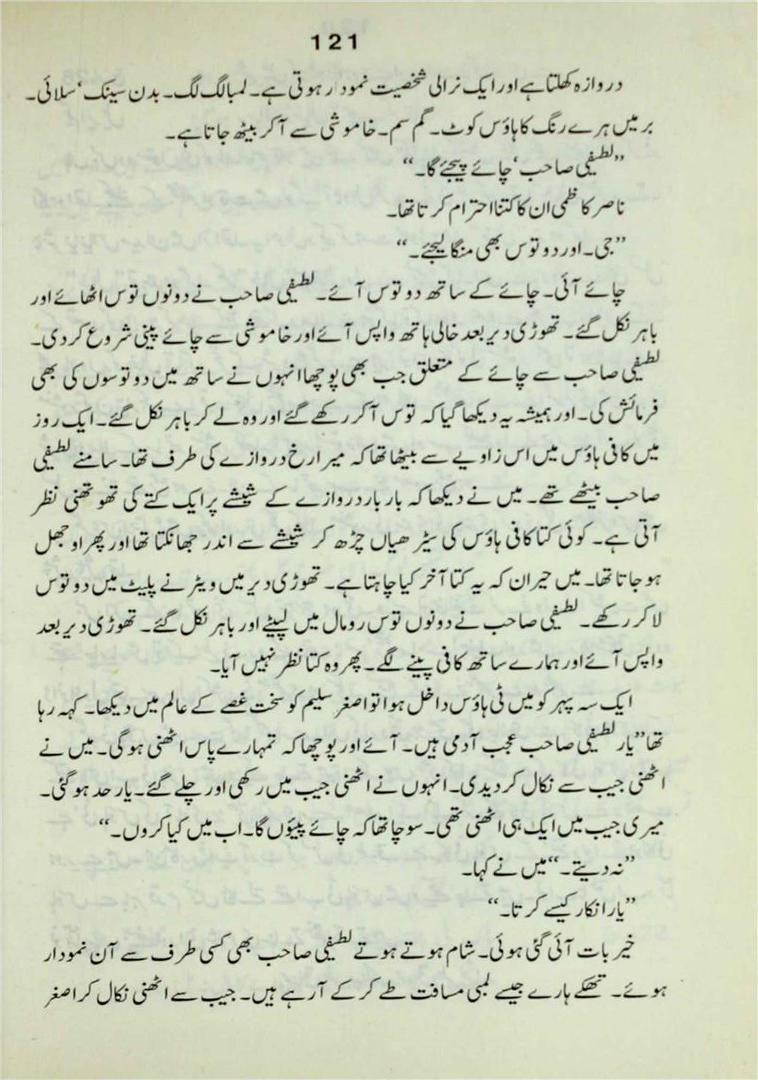 121
دروازہ کھلتا ہے اور ایک نرالی شخصیت نمودار ہوتی ہے۔ لمبا لگ لگ۔ بدن سینک‘ سلائی۔
بر میں ہرے رنگ کا ہاؤس کوٹ۔ گم سم۔ خاموشی سے آ کر بیٹھ جاتا ہے۔
”لطیفی صاحب‘ چائے پیجئے گا۔“
ناصر کاظمی ان کا کتنا احترام کرتا تھا۔
”جی۔ اور دو توس بھی منگا لیجئے۔“
چائے آئی۔ چائے کے ساتھ دو توس آئے۔ لطیفی صاحب نے دونوں توس اٹھائے اور
باہر نکل گئے۔ تھوڑی دیر بعد خالی ہاتھ واپس آئے اور خاموشی سے چائے پینی شروع کر دی۔
لطیفی صاحب سے چائے کے متعلق جب بھی پوچھا انہوں نے ساتھ میں دو توسوں کی بھی
فرمائش کی۔ اور ہمیشہ یہ دیکھا گیا کہ توس آ کر رکھے گئے اور وہ لے کر باہر نکل گئے۔ ایک روز
میں کافی ہاؤس میں اس زاویے سے بیٹھا تھا کہ میرا رخ دروازے کی طرف تھا۔ سامنے لطیفی
صاحب بیٹھے تھے۔ میں نے دیکھا کہ بار بار دروازے کے شیشے پر ایک کتے کی تھوتھنی نظر
آتی ہے۔ کوئی کتا کافی ہاؤس کی سیڑھیاں چڑھ کر شیشے سے اندر جھانکتا تھا اور پھر اوجھل
ہو جاتا تھا۔ میں حیران کہ یہ کتا آخر کیا چاہتا ہے۔ تھوڑی دیر میں ویٹر نے پلیٹ میں دو توس
لا کر رکھے۔ لطیفی صاحب نے دونوں توس رومال میں لپیٹے اور باہر نکل گئے۔ تھوڑی دیر بعد
واپس آئے اور ہمارے ساتھ کافی پینے لگے۔ پھر وہ کتا نظر نہیں آیا۔
ایک سہ پہر کو میں ٹی ہاؤس داخل ہوا تو اصغر سلیم کو سخت غصے کے عالم میں دیکھا۔ کہہ رہا
تھا ”یار لطیفی صاحب عجب آدمی ہیں۔ آئے اور پوچھا کہ تمہارے پاس اٹھنی ہو گی۔ میں نے
اٹھنی جیب سے نکال کر دیدی۔ انہوں نے اٹھنی جیب میں رکھی اور چلے گئے۔ یار حد ہو گئی۔
میری جیب میں ایک ہی اٹھنی تھی۔ سوچا تھا کہ چائے پیئوں گا۔ اب میں کیا کروں۔“
”نہ دیتے۔“ میں نے کہا۔
”یار انکار کیسے کرتا۔“
خیر بات آئی گئی ہوئی۔ شام ہوتے ہوتے لطیفی صاحب بھی کسی طرف سے آن نمودار
ہوئے۔ تھکے ہارے جیسے لمبی مسافت طے کر کے آ رہے ہیں۔ جیب سے اٹھنی نکال کر اصغر